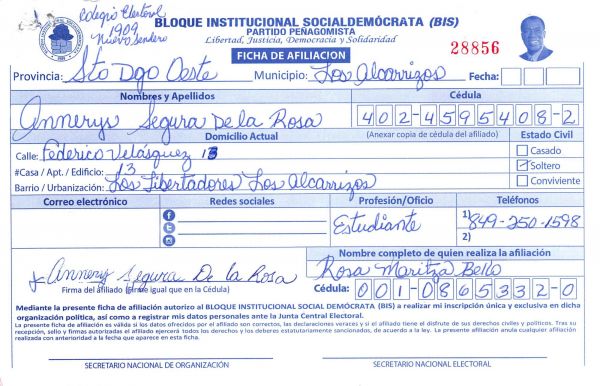 Colegio Electoral
1909
Nuevo Sendero
BLOQUE INSTITUCIONAL SOCIALDEMÓCRATA (BIS)
PARTIDO PEÑAGOMISTA
Libertad, Justicia, Democracia y Solidaridad
FICHA DE AFILIACION
28856
Provincia: Sto Dgo Oeste Municipio: Los Alcarrizos Fecha:
Nombres y Apellidos Cédula
Annerys Segura De la Rosa 402-4595408-2
Domicilio Actual (Anexar copia de cédula del afiliado) Estado Civil
Calle: Federico Velásquez 13 Casado
#Casa / Apt. / Edificio: 13 Soltero
Barrio / Urbanización: Los Libertadores Los Alcarrizos Conviviente
Correo electrónico Redes sociales Profesión/Oficio Teléfonos
Estudiante 1) 849-250-1598
2)
Annerys Segura De la Rosa
Firma del afiliado (firme igual que en la Cédula)
Nombre completo de quien realiza la afiliación
Rosa Maritza Bello
Cédula: 001-0865332-0
Mediante la presente ficha de afiliación autorizo al BLOQUE INSTITUCIONAL SOCIAL DEMÓCRATA (BIS) a realizar mi inscripción única y exclusiva en dicha
organización política, así como a registrar mis datos personales ante la Junta Central Electoral.
La presente ficha de afiliación es válida si los datos ofrecidos por el afiliado son correctos, las declaraciones veraces y si el afiliado tiene el disfrute de sus derechos civiles y políticos. Tras su
recepción, sello y firmas autorizadas el afiliado ejercerá todos los derechos y los deberes estatutariamente sancionados, de acuerdo a la ley. La presente afiliación anula cualquier afiliación
realizada con anterioridad a la fecha que aparece en esta ficha.
SECRETARIO NACIONAL DE ORGANIZACIÓN SECRETARIO NACIONAL ELECTORAL